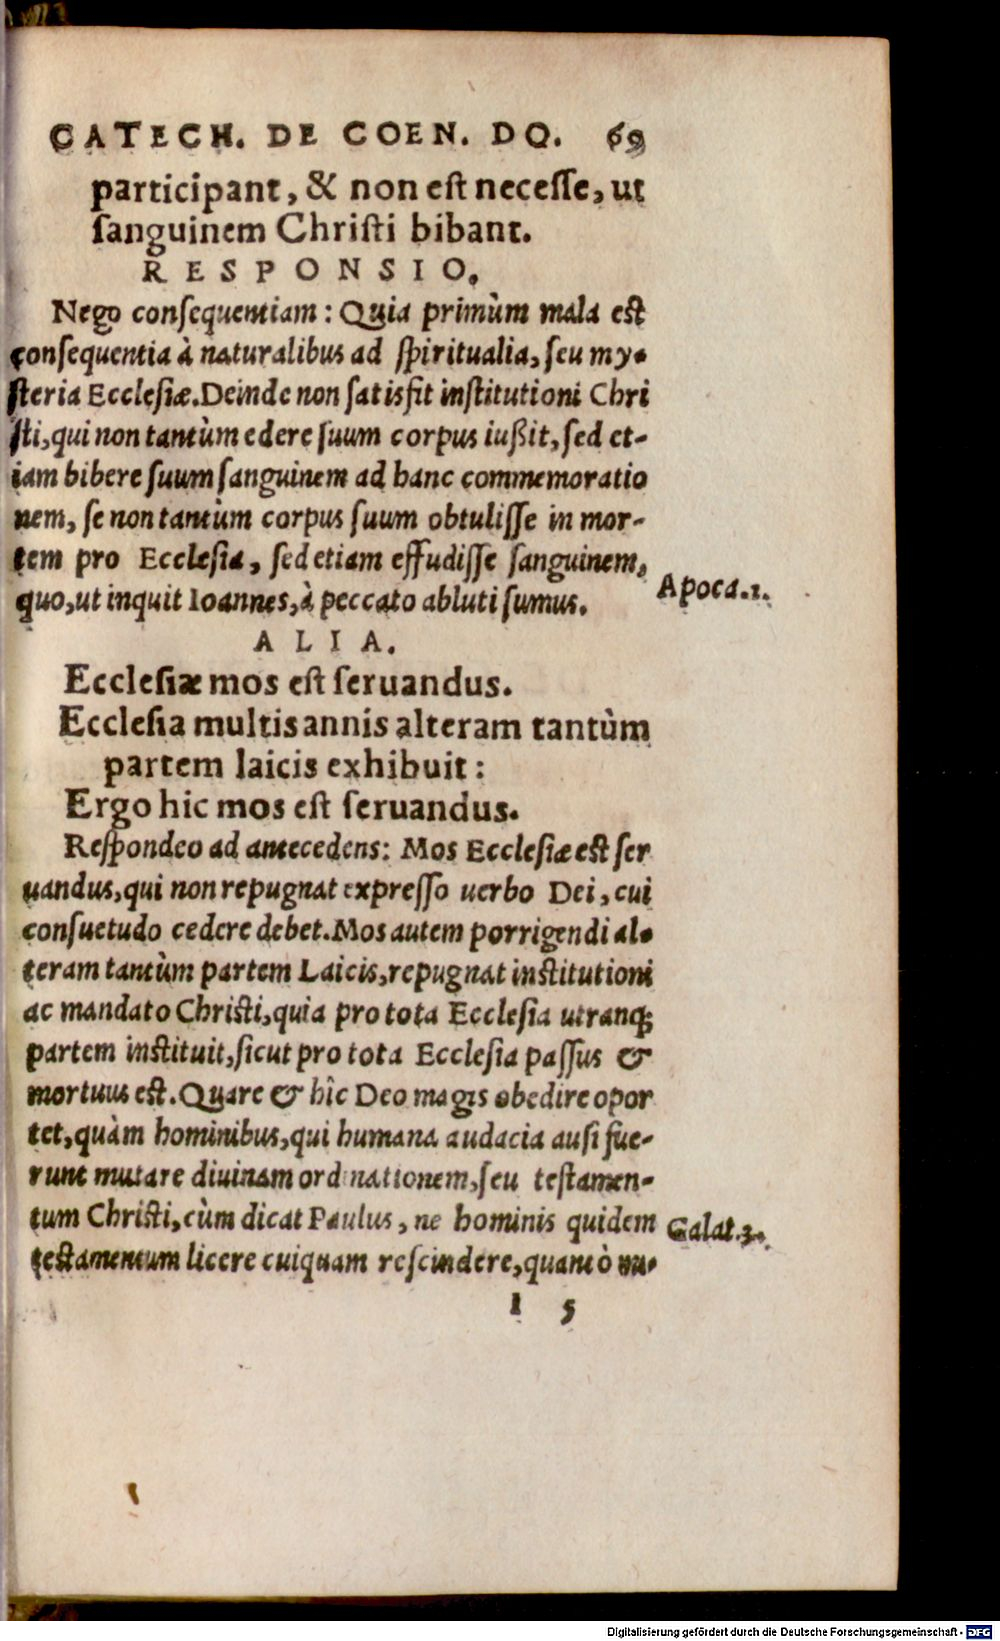 CATECH. DE COEN. DO. 69
participant, & non est necesse, ut
sanguinem Christi bibant.
RESPONSIO.
Nego consequentiam: Quia primùm mala est
consequentia à naturalibus ad spiritualia, seu my-
steria Ecclesiæ. Deinde non satisfit institutioni Chri
sti, qui non tantùm edere suum corpus iußit, sed et-
iam bibere suum sanguinem ad hanc commemoratio
nem, se non tantùm corpus suum obtulisse in mor-
tem pro Ecclesia, sed etiam effudisse sanguinem,
quo, ut inquit Ioannes, à peccato abluti sumus.
Apoca.1.
ALIA.
Ecclesiæ mos est seruandus.
Ecclesia multis annis alteram tantùm
partem laicis exhibuit:
Ergo hic mos est seruandus.
Respondeo ad antecedens: Mos Ecclesiæ est ser
uandus, qui non repugnat expresso uerbo Dei, cui
consuetudo cedere debet. Mos autem porrigendi al-
teram tantùm partem Laicis, repugnat institutioni
ac mandato Christi, quia pro tota Ecclesia utranq;
partem instituit, sicut pro tota Ecclesia passus &
mortuus est. Quare & hîc Deo magis obedire opor
tet, quàm hominibus, qui humana audacia ausi fue-
runt mutare diuinam ordinationem, seu testamen-
tum Christi, cùm dicat Paulus, ne hominis quidem
Galat.3.
testamentum licere cuiquam rescindere, quantò mi-
I 5
Digitalisierung gefördert durch die Deutsche Forschungsgemeinschaft - DFG